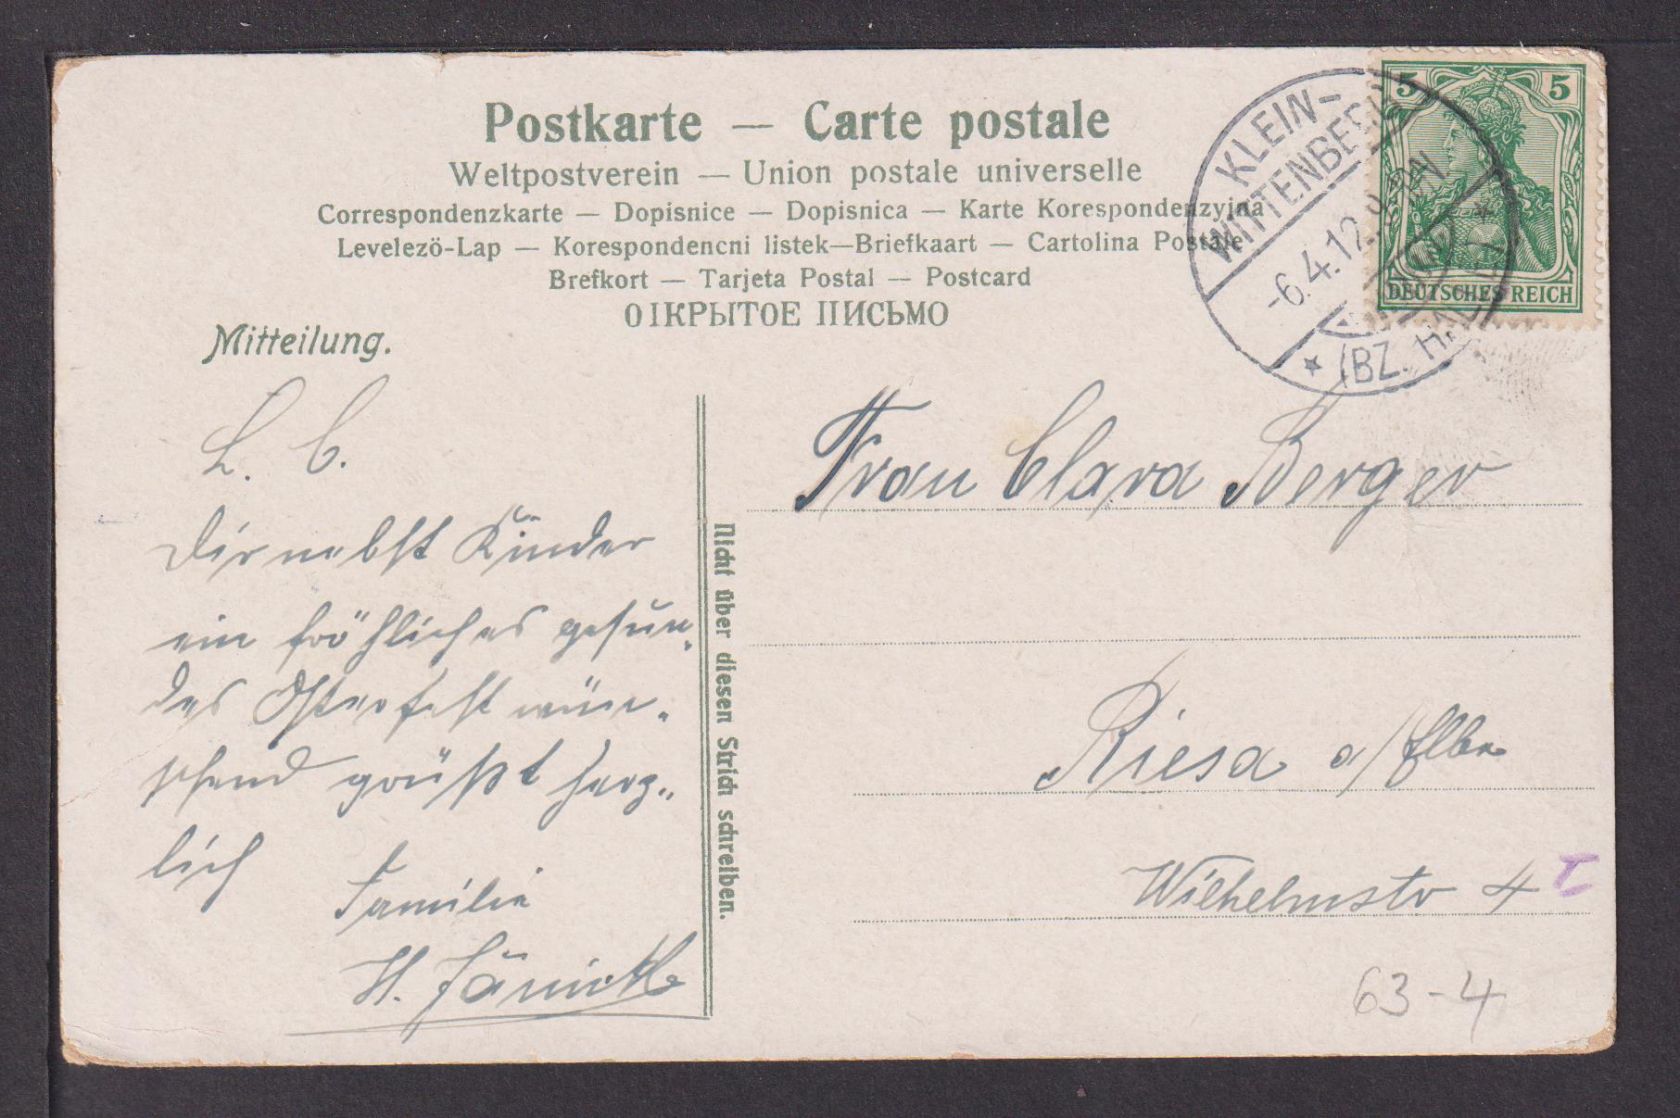 Postkarte — Carte postale
Weltpostverein — Union postale universelle
Correspondenzkarte — Dopisnice — Dopisnica — Karte Korespondenzyjna
Levelezö-Lap — Korespondencni listek—Briefkaart — Cartolina Postale
Brefkort — Tarjeta Postal — Postcard
ОІКРЫТОЕ ПИСЬМО
5 5
DEUTSCHES REICH
KLEIN-
WITTENBERG
-6.4.12. 8-9N.
* (BZ. HA
Mitteilung.
L. C.
Dir nebst Kinder
ein fröhliches gesun-
des Osterfest wün-
schend grüßt herz-
lich
Familie
H. Jänicke
Nicht über diesen Strich schreiben.
Frau Clara Berger
Riesa a/Elbe
Wilhelmstr 4
I
63-4